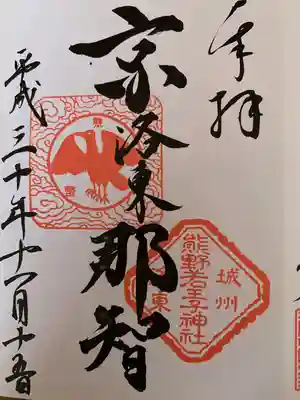 奉拝
京洛東那智
城州
熊野若王子神社
東
平成三十年十一月十五日